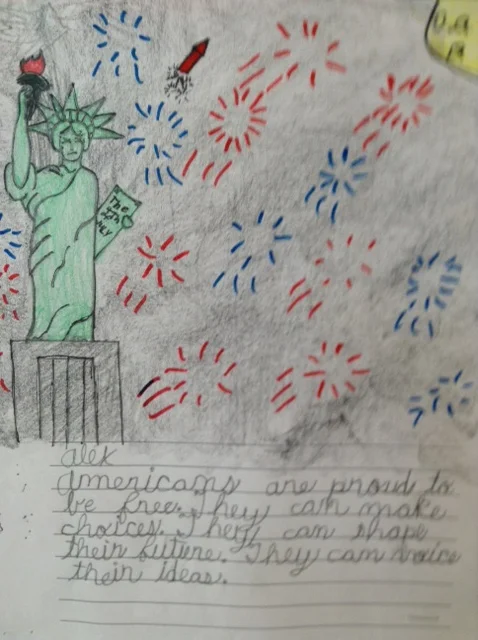 The
4th
alek
Americans are proud to
be free. They can make
choices. They can shape
their future. They can voice
their ideas.